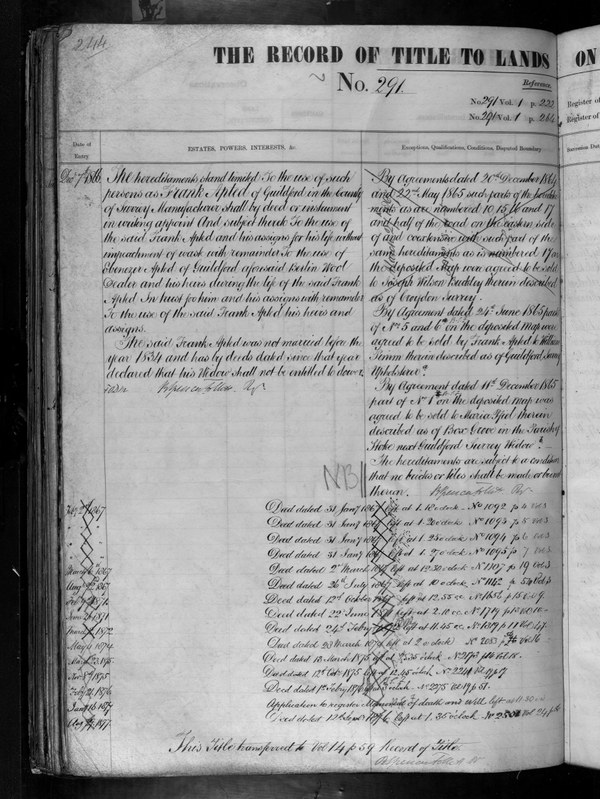 244
THE RECORD OF TITLE TO LANDS
ON
No. 291.
Reference.
No. 291 Vol. 1 p. 232
No. 291 Vol. 1 p. 264
Register of
Register of
Date of
Entry
ESTATES, POWERS, INTERESTS, &c.
Exceptions, Qualifications, Conditions, Disputed Boundary
Decr 7th 1866
The hereditaments stand limited To the use of such
persons as Frank Apted of Guildford in the County
of Surrey Manufacturer shall by deed or instrument
in writing appoint And subject thereto To the use of
the said Frank Apted and his assigns for his life without
impeachment of waste with remainder To the use of
Ebenezer Apted of Guildford aforesaid Berlin Wool
Dealer and his heirs during the life of the said Frank
Apted In trust for him and his assigns with remainder
To the use of the said Frank Apted his heirs and
assigns.
The said Frank Apted was not married before the
year 1834 and has by deeds dated since that year
declared that his Widow shall not be entitled to dower.
By Agreements dated 20th December 1864
and 22nd May 1865 such parts of the heredita-
ments as are numbered 10 15 16 and 17
and half of the road on the eastern side
of and coextensive with such part of the
same hereditaments as is numbered 17 on
the deposited Map were agreed to be sold
to Joseph Wilson Buckley therein described
as of Croydon Surrey.
By Agreement dated 24th June 1865 parts
of Nos 5 and 6 on the deposited Map were
agreed to be sold by Frank Apted to William
Timm therein described as of Guildford Surrey
Upholsterer
By Agreement dated 11th December 1865
part of No 1 on the deposited Map was
agreed to be sold to Maria therein
described as of Box Grove in the Parish of
Stoke next Guildford Surrey Widow
The hereditaments are subject to a condition
that no bricks or tiles shall be made or burnt
therein.
NB
1867 Deed dated 31 Jany 1867 left at 1.10 o'clock No 1092 p 4 Vol 3
" Deed dated 31 Jany 1867 left at 1.20 o'clock No 1093 p 5 Vol 3
" Deed dated 31 Jany 1867 left at 1.25 o'clock No 1094 p 6 Vol 3
" Deed dated 31 Jany 1867 left at 1.27 o'clock No 1095 p 7 Vol 3
March 1867 Deed dated 2nd March 1867 left at 12.30 o'clock No 1107 p 19 Vol 3
Augt 1867 Deed dated 26th July 1867 left at 10 o'clock No 1142 p 54 Vol 3
1871 Deed dated 12th October left at 12.55 oc No 1656 p 15 Vol 9
June 1871 Deed dated 22 June 1871 left at 2.10 oc No 1719 p Vol 10
March 1872 Deed dated 24th Feby 1872 left at 11.45 oc No 1819 p 18 Vol
May 4 1874 Deed dated 23 March 1874 left at 2 o'clock No 2083 p 26 Vol 16
March 1875 Deed dated 13 March 1875 left at 12.35 o'clock No 2172 p 14 Vol 18
Novr 8th 1875 Deed dated 12th Octr 1875 left at 12.45 o'clock No 2244
Feby 24 1876 Deed dated 1st Feby 1876 o'clock No 2275 Vol 19 p 51
Jany 16 1877 Application to register of death and Will left at
Augt 1877 Deed dated 1876 left at 1.35 o'clock Vol 24 p
This Title transferred to Vol 14 p 59 Record of Title